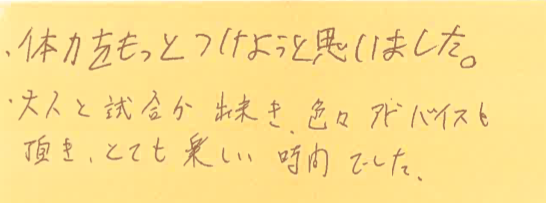 ・体力をもっとつけようと思いました。
・大人と試合が出来き、色々アドバイスも
頂き、とても楽しい時間でした。